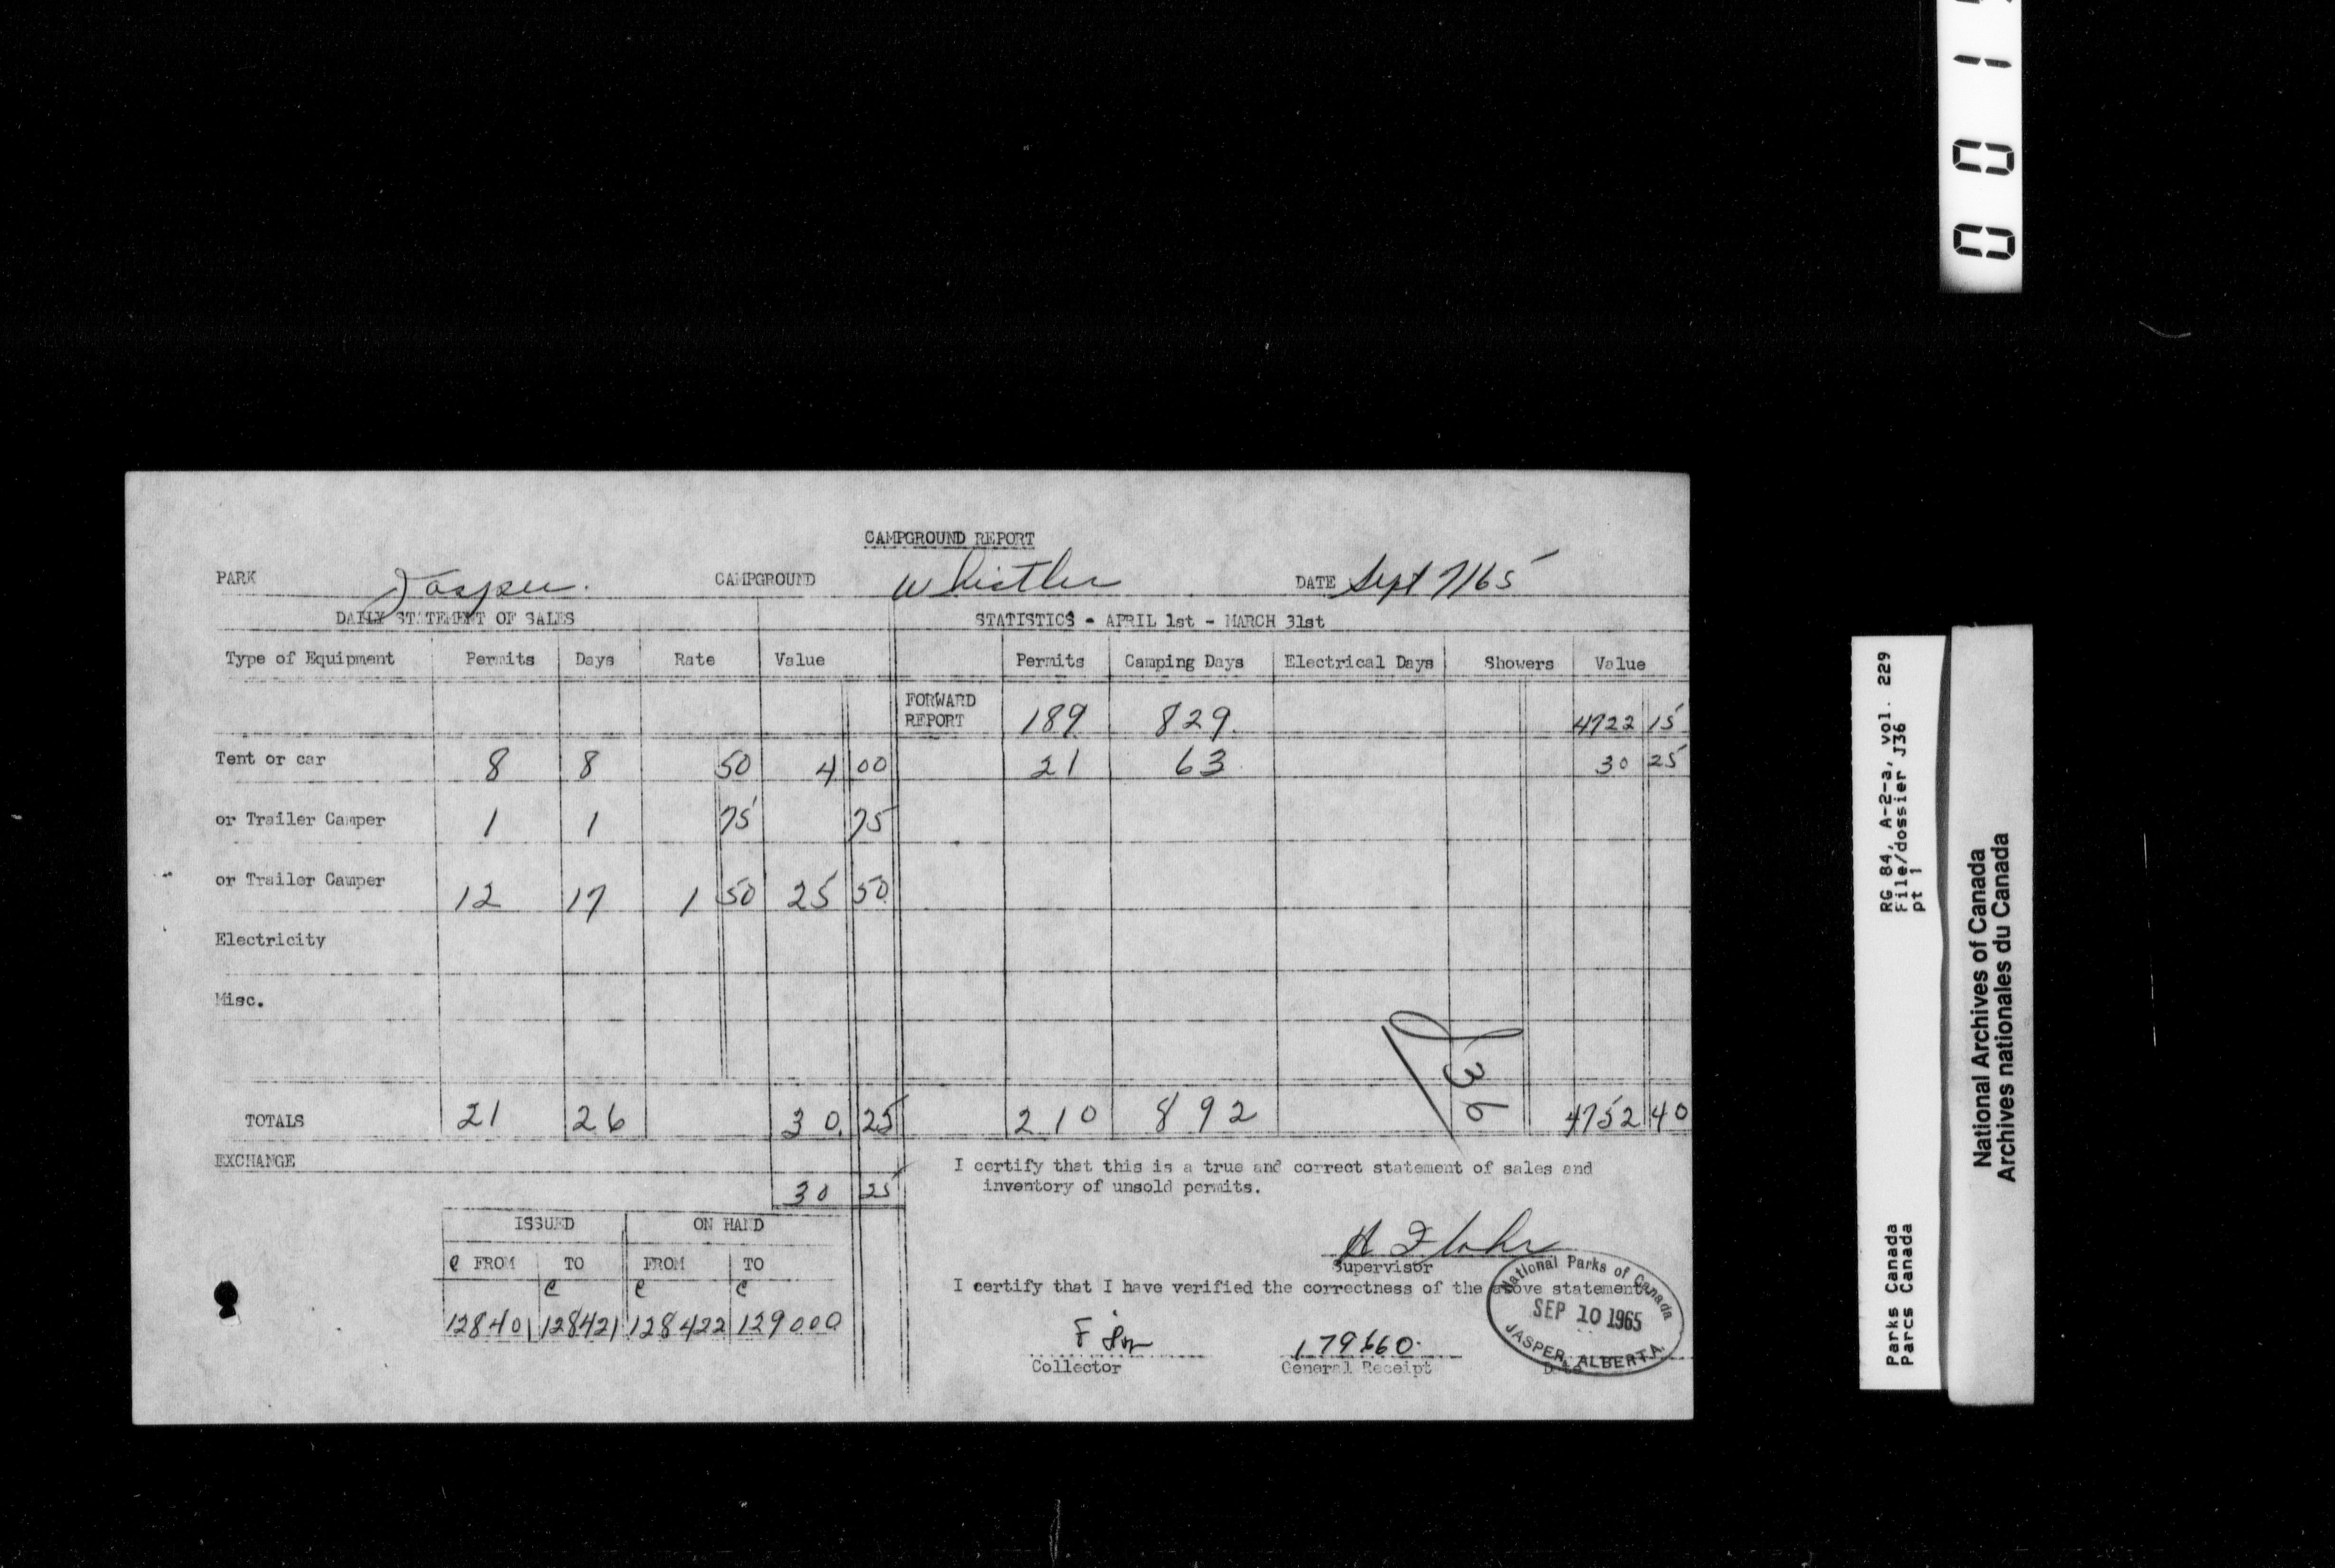 CAMPGROUND REPORT
PARK Jasper. CAMPGROUND Whistler DATE Sept 7/65
DAILY STATEMENT OF SALES STATISTICS - APRIL 1st - MARCH 31st
Type of Equipment Permits Days Rate Value Permits Camping Days Electrical Days Showers Value
FORWARD REPORT 189 829. 4722 15
Tent or car 8 8 50 4 00 21 63 30 25
or Trailer Camper 1 1 75 75
or Trailer Camper 12 17 1 50 25 50
Electricity
Misc.
J36
TOTALS 21 26 30. 25 210 892 4752 40
EXCHANGE
30 25
I certify that this is a true and correct statement of sales and
inventory of unsold permits.
ISSUED ON HAND
C FROM TO FROM TO
C C C
128401 128421 128422 129000
Supervisor
I certify that I have verified the correctness of the above statement.
179660.
Collector General Receipt Date
National Parks of Canada
SEP 10 1965
JASPER, ALBERTA.
RG 84, A-2-a, vol. 229
File/dossier J36
pt 1
Parks Canada
Parcs Canada
National Archives of Canada
Archives nationales du Canada
0 0 1